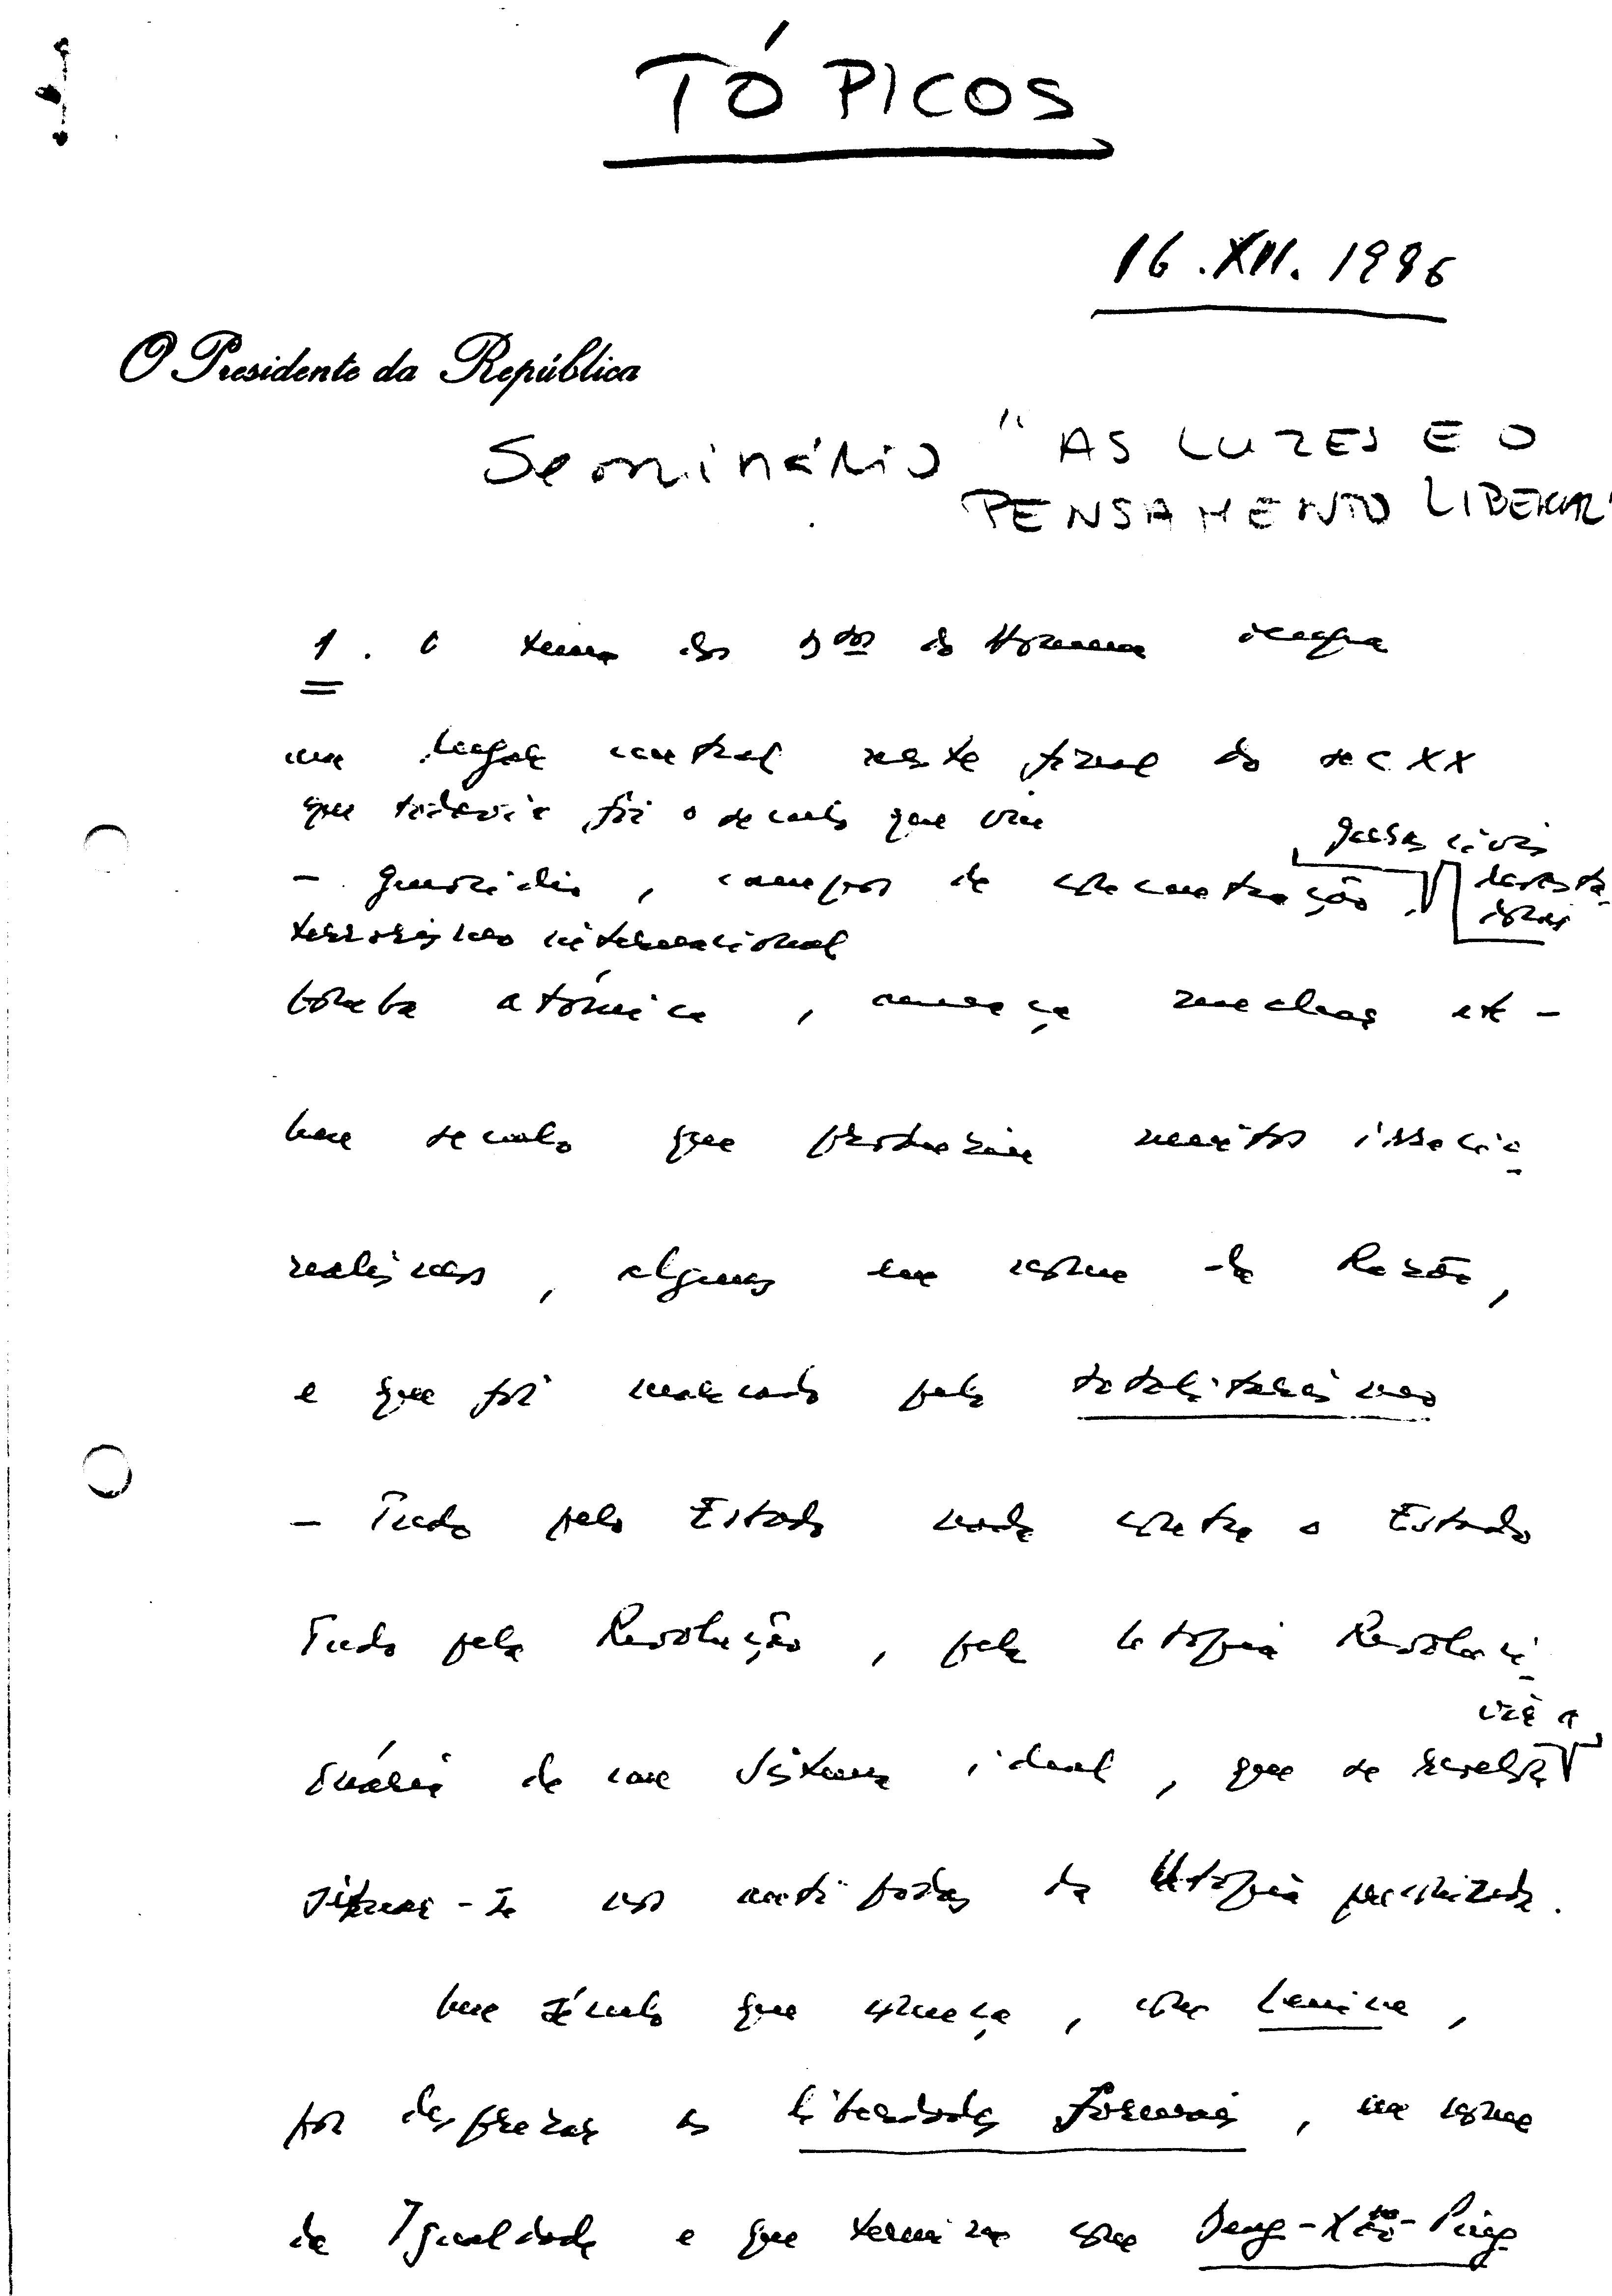 TÓPICOS
16.XII.1996
O Presidente da República
Seminário "AS LUZES E O
PENSAMENTO LIBERAL"
1. O tema dos Dtos do Homem ocupa
um lugar central neste final do sec XX
que todavia foi o seculo que viu
guerras civis
- genocidio, campos de concentração, devasta-
doras
terrorismo internacional
bomba atómica, ameaça nuclear etc -
Um seculo que produziu muitos irracio-
nalismos, alguns em nome da Razão,
e que foi marcado pelo totalitarismo
- Tudo pelo Estado nada contra o Estado
Tudo pela Revolução, pela Utopia Revoluci-
onária de um sistema ideal, que se revelou
nos antipodas da Utopia preconizada.
Um século que começa, com Lenine,
por desprezar as liberdades formais, em nome
da Igualdade e que termina com Deng-Xiao-Ping